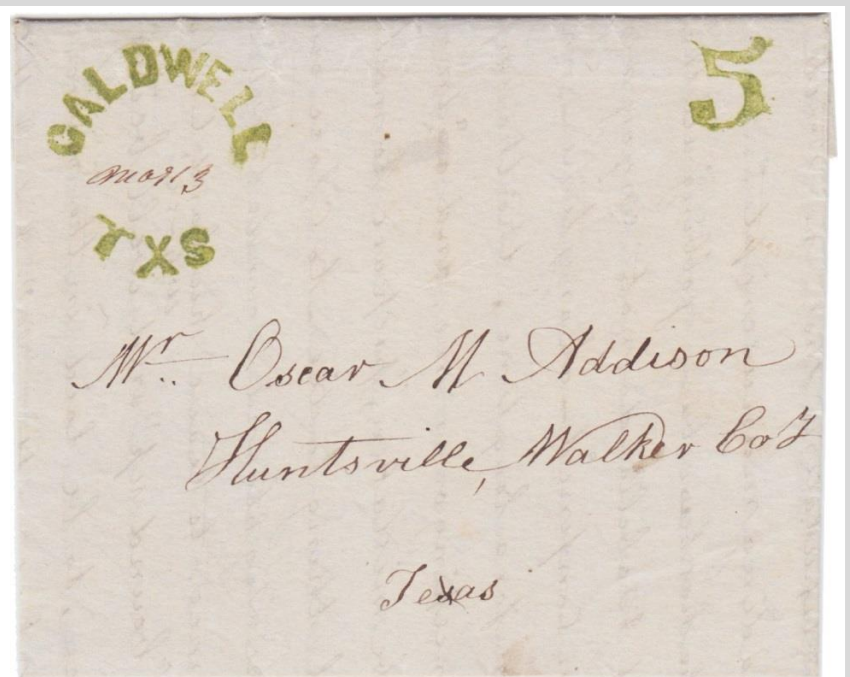 CALDWELL
5
Mar 13
TXS
Mr. Oscar M Addison
Huntsville, Walker Co T
Texas